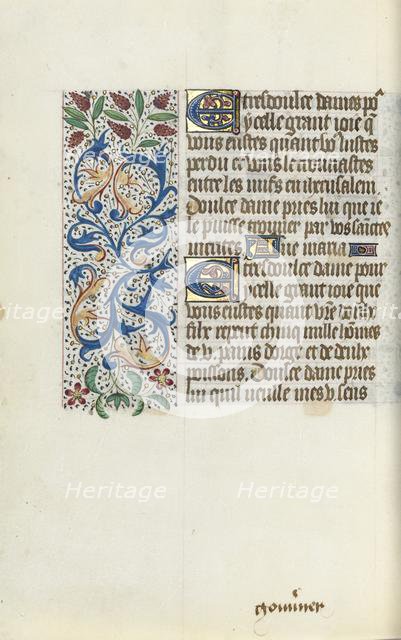 E tresdoulce dame po^r
ycelle grant ioie q̃
vous eustes quant v^o leustes
perdu et vous le trouuastes
entre les iuifs en iherusalem
Doulce dame pries lui que ie
le puisse trouuer par vos saintes
merites. Aue maria
E tresdoulce dame pour
ycelle grant ioie que
vous eustes quant vr̃e
filx reput chinq mille hõmes
de v. pains dorge et de deulx
poissons. Doulce dame pries
lui quil ueille mes v. sens
Heritage
Heritage